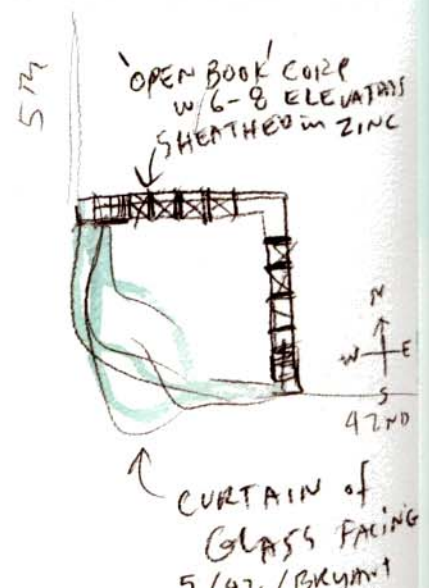 5TH
'OPEN BOOK' CORE
W/ 6-8 ELEVATORS
SHEATHED in ZINC
N
W E
S
42ND
CURTAIN of
GLASS FACING
5/42/BRYANT